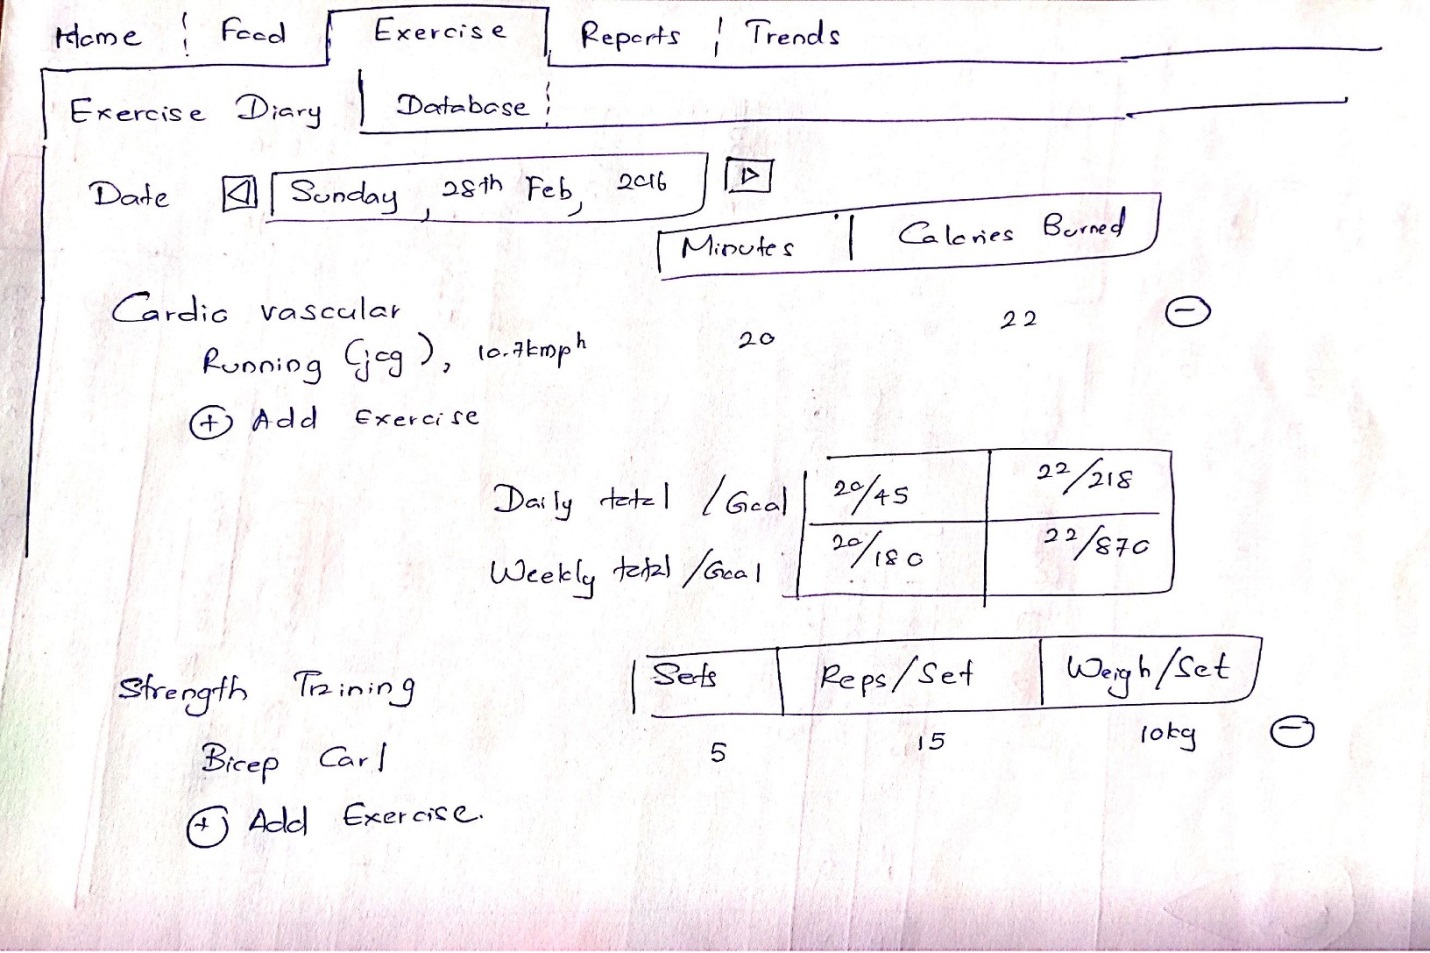 Home Food Exercise Reports Trends
Exercise Diary Database
Date Sunday, 28th Feb, 2016
Minutes Calories Burned
Cardio vascular
Running (jog), 10.7kmph 20 22
Add Exercise
Daily total /Goal 20/45 22/218
Weekly total /Goal 20/180 22/870
Strength Training Sets Reps/Set Weigh/Set
Bicep Carl 5 15 10kg
Add Exercise.